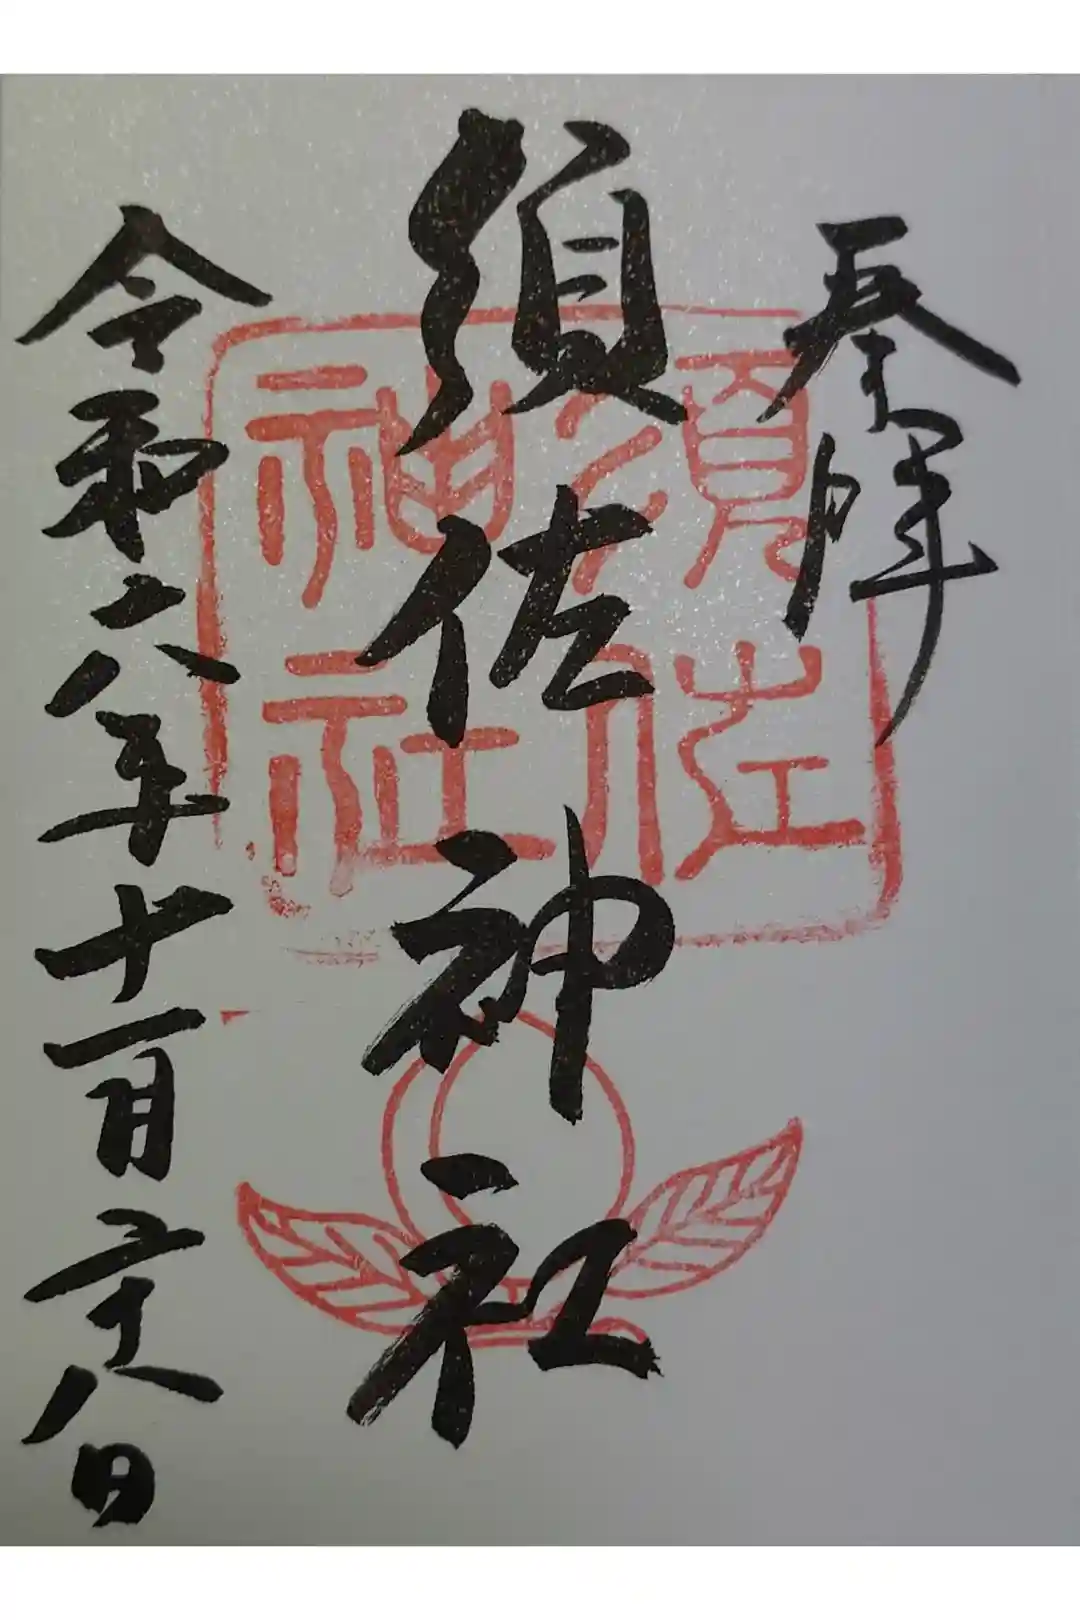 奉拝
須佐神社
令和六年十一月二十八日
須佐
神社